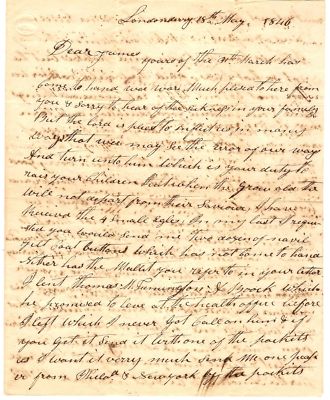 Londonderry 18th May, 1846
Dear James
yours of the March has
come to hand wee wer Much pleased to here from
you & sorry to hear of the Sickness in your family
But the lord is pleased to inflict us in maney
Ways that wee may See the Error of our ways
And turn unto him Which is your duty to
rais your Children that When the Grow old the
Will not depart from their Saviour I have
the 4 Small In my last I reque
sted you Would Send me two dozen of navie
gilt Coat buttons Which has not Come to hand
nither has the you refer to in your letter
I lent thomas & Brock Which
he promised to leve at the health office before
I left Which I never Got Call on him & if
you Get it Send it With one of the packets
as I want it verry much Send Me one
from Phila & Newyork of the packets